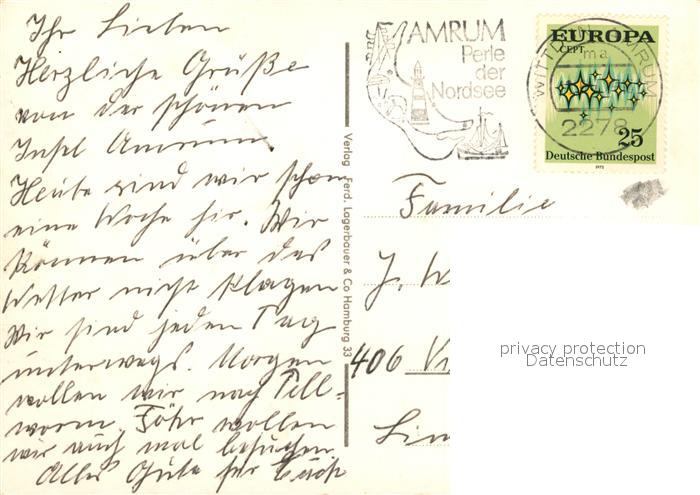 Ihr Lieben
Herzliche Grüße
von der schönen
Insel Amrum.
Heute sind wir schon
eine Woche hir. Wir
können über das
Wetter nicht klagen
Wir sind jeden Tag
unterwegs. Morgen
wollen wir nach Pell=
worm. Föhr wollen
wir auch mal besuchen.
Alles Gute für Euch
Verlag Ferd. Lagerbauer & Co Hamburg 33
AMRUM
Perle
der
Nordsee
WITTDÜN AMRUM
ma
2278
EUROPA
CEPT
25
Deutsche Bundespost
1972
Familie
J. W
406 Vi
privacy protection
Datenschutz